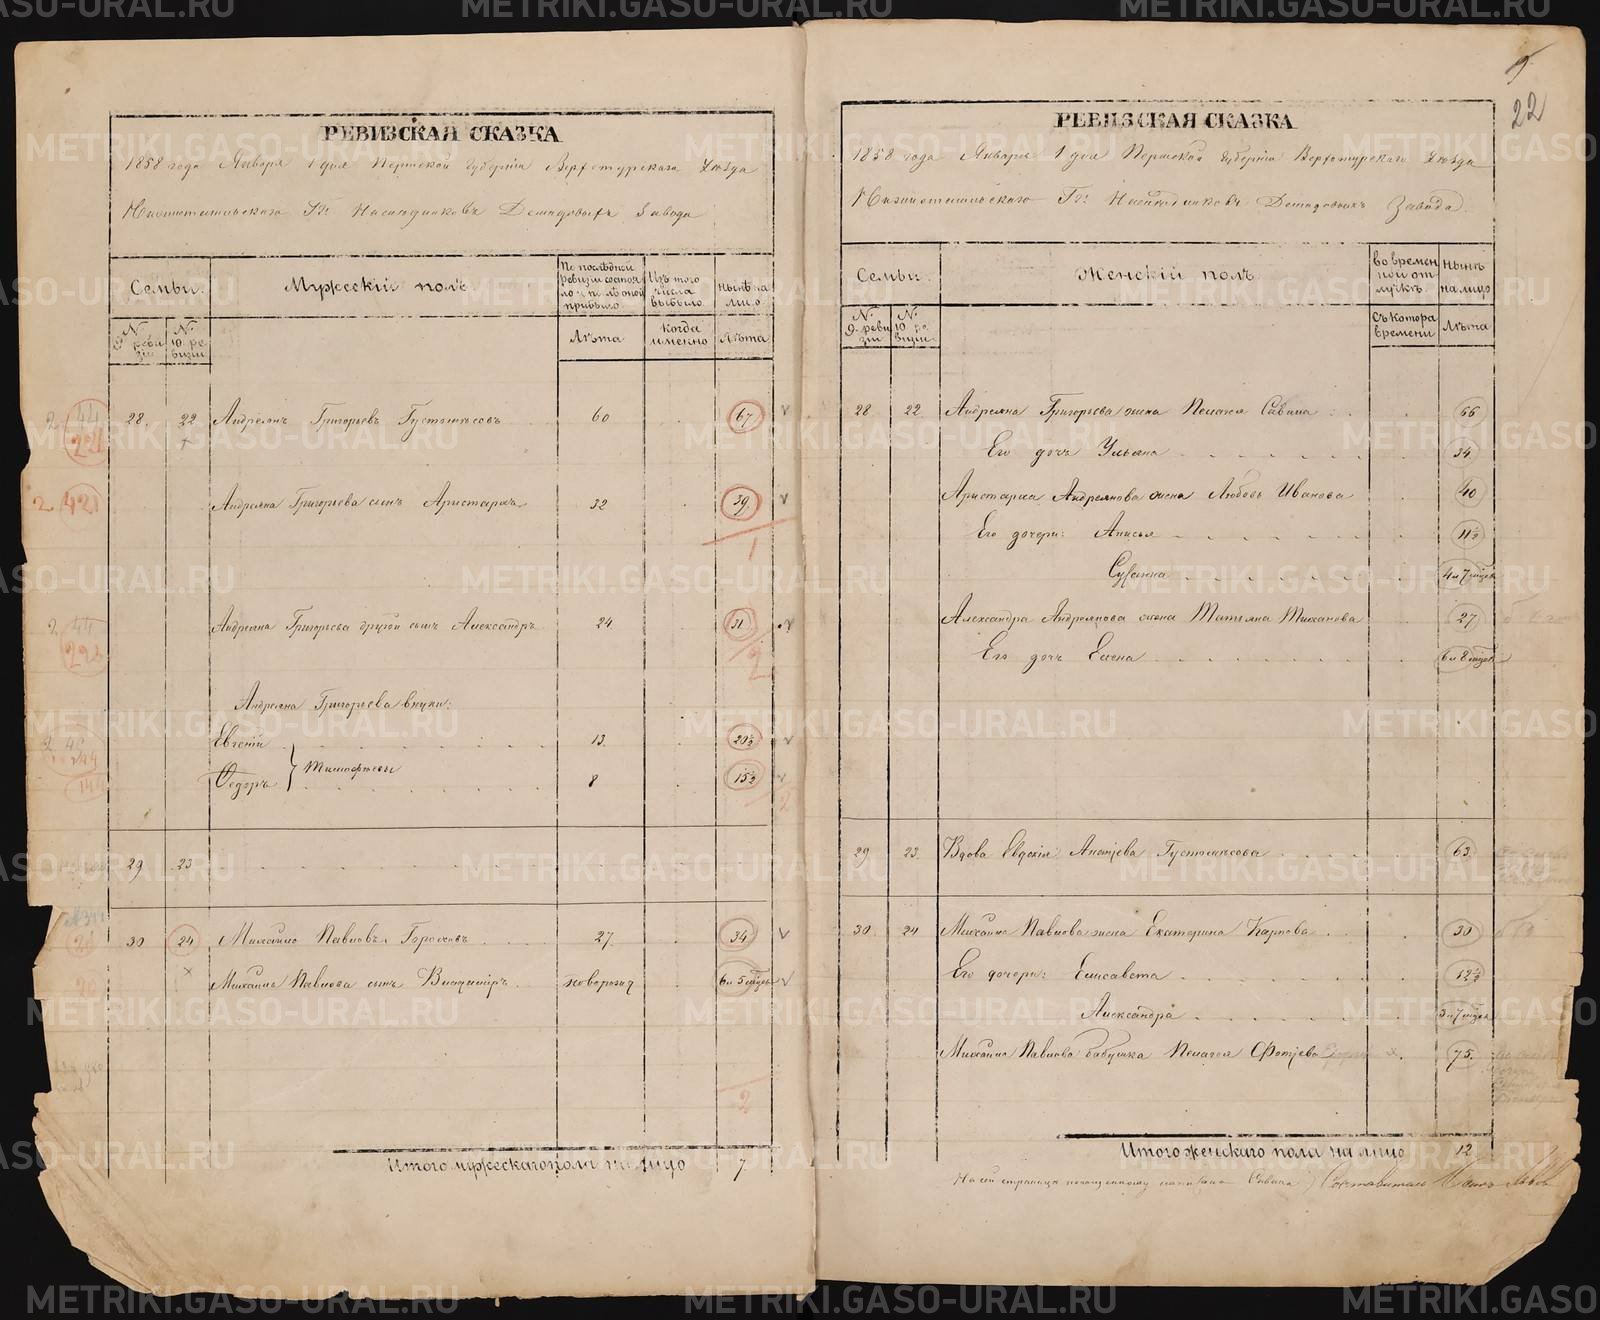 РЕВИЗСКАЯ СКАЗКА
1858 года Января 1 дня Пермской Губернiи Верхотурскаго Уѣзда
Гг. Наслѣдниковъ Демидовыхъ Завода
Семьи.
Мужескiй полъ.
По послѣдней ревизiи состояло и послѣ оной прибыло
Изъ того числа выбыло
Нынѣ на лицо
№ 9 ревизiи
№ 10 ревизiи
Лѣта
когда именно
Лѣта
28. 22 Андреянъ Григорьевъ Густомѣсовъ 60 67
Андреяна Григорьева сынъ Аристархъ 32 39
1
Андреяна Григорьева другой сынъ Александръ 24 31
2
Андреяна Григорьева внуки:
Евгенiй 13. 20½
Ѳедоръ } Тимофѣевы 8 15½
2
29 23
30 24 Михайло Павловъ Гороховъ 27. 34
Михайла Павлова сынъ Владимiръ новорожд 6 и 5 мѣсяц
2
Итого мужескаго пола на лицо 7
22
РЕВИЗСКАЯ СКАЗКА
1858 года Января 1 дня Пермской Губернiи Верхотурскаго Уѣзда
Гг. Наслѣдниковъ Демидовыхъ Завода.
Семьи.
Женскiй полъ.
во временной отлучкѣ.
Нынѣ на лицо
№ 9. ревизiи
№ 10 ревизiи.
Съ котора времени
Лѣта
28 22 Андреяна Григорьева жена Пелагея Савина 66
Его дочь Ульяна 34
Аристарха Андреянова жена Любовь Иванова 40
Его дочери: Анисья 11½
Сусанна 4 и 7 мѣсяц
Александра Андреянова жена Татьяна Тиханова 27
Его дочь Елена 6 и 8 мѣсяц
29 23. Вдова Евдокiя Густомѣсова 63.
30. 24 Михайла Павлова жена Екатерина Карпова 30
Его дочери: Елисавета 12½
Александра 3 и 7 мѣсяц
Михайла Павлова бабушка Пелагея 75.
Итого женскаго пола на лицо 12
На сей страницѣ по написано Савина Составитель
METRIKI.GASO-URAL.RU